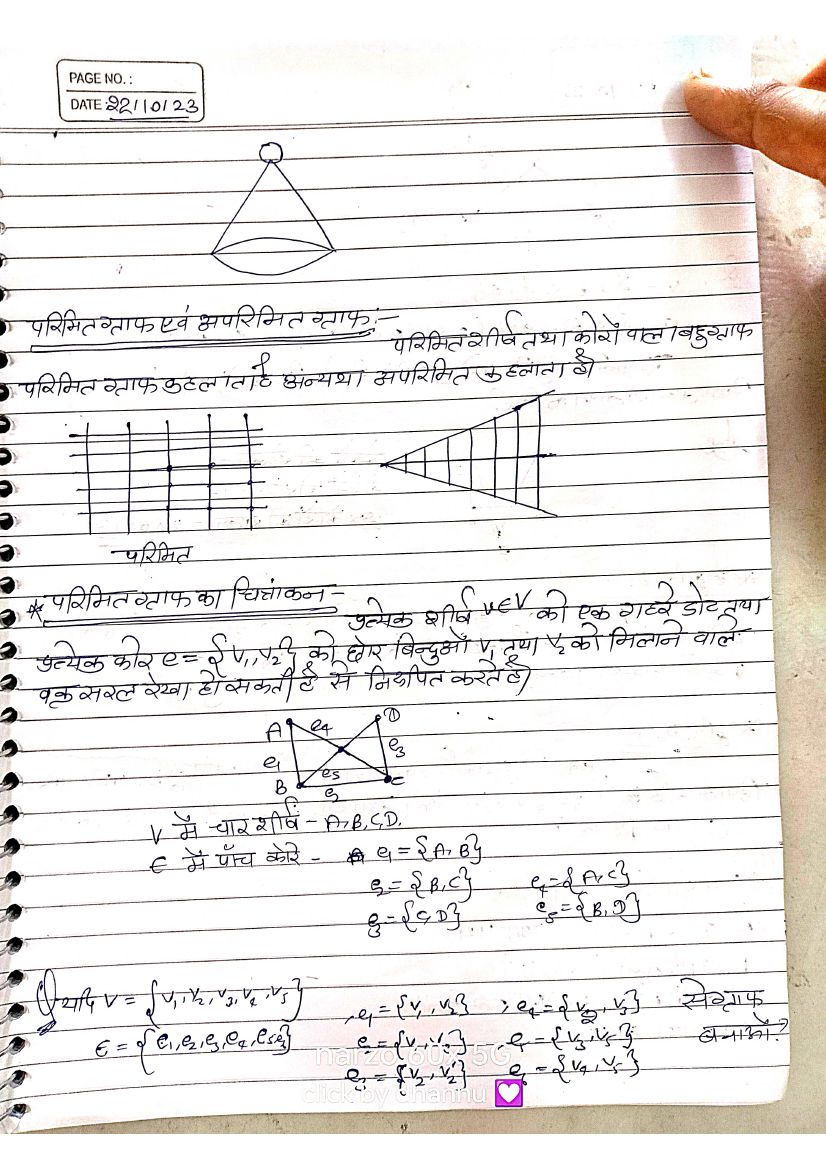 PAGE NO.:
DATE 22/10/23
परिमित ग्राफ एवं अपरिमित ग्राफ :-
परिमित शीर्ष तथा कोरों वाला बहुग्राफ
परिमित ग्राफ कहलाता है अन्यथा अपरिमित कहलाता है।
परिमित
* परिमित ग्राफ का चित्रांकन -
प्रत्येक शीर्ष V∈V को एक गहरे डोट तथा
प्रत्येक कोर e = {V₁, V₂} को छोर बिन्दुओं V₁ तथा V₂ को मिलाने वाले
वक्र सरल रेखा हो सकती है से निरूपित करते है)
A e₄ D
e₁ e₃
B e₅ C
e₂
V में चार शीर्ष - A, B, C, D.
E में पाँच कोरे - e₁ = {A, B}
e₂ = {B, C} e₄ = {A, C}
e₃ = {C, D} e₅ = {B, D}
यदि V = {V₁, V₂, V₃, V₄, V₅}
E = {e₁, e₂, e₃, e₄, e₅
से ग्राफ
बनाओ?
= {V₃, V₅}
= {V₂, V₂}
= {V₄, V₅}
narzo 60x 5G
click by Channu